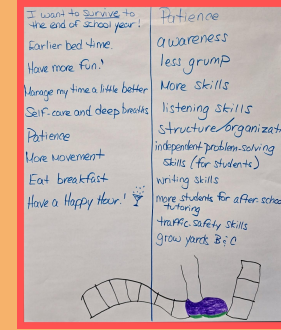 I want to survive to
the end of school year!
Earlier bed time.
Have more fun!
Manage my time a little better
Self-care and deep breaths
Patience
More Movement
Eat breakfast
Have a Happy Hour!
Patience
awareness
less grump
More skills
listening skills
structure/organizat
independent problem-solving
skills (for students)
writing skills
more students for after-schoo
tutoring
traffic safety skills
grow yards B&C